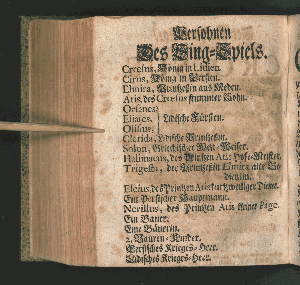 Persohnen
Des Sing-Spiels.
Crœsus, König in Lidien.
Cirus, König in Persien.
Elmira, Printzeßin aus Meden.
Atis, des Crœsus stummer Sohn.
Orsanes,
Eliates, Lidische Fürsten.
Olisius,
Clerida, Lidische Printzeßin.
Solon, Griechischer Welt-Weiser.
Halimacus, des Printzen Atis Hofe-Meister.
Trigesta, der Printzeßin Elmira alte
dienerin.
Elcius, des Printzen Atis kurtzweiliger Diener.
Ein Persischer Hauptmann.
Nerillus, des Printzen Atis Page.
Ein Bauer.
Eine Bäuerin.
2. Bauren-Kinder.
Persisches Krieges-Heer.
Lidisches Krieges-Heer.